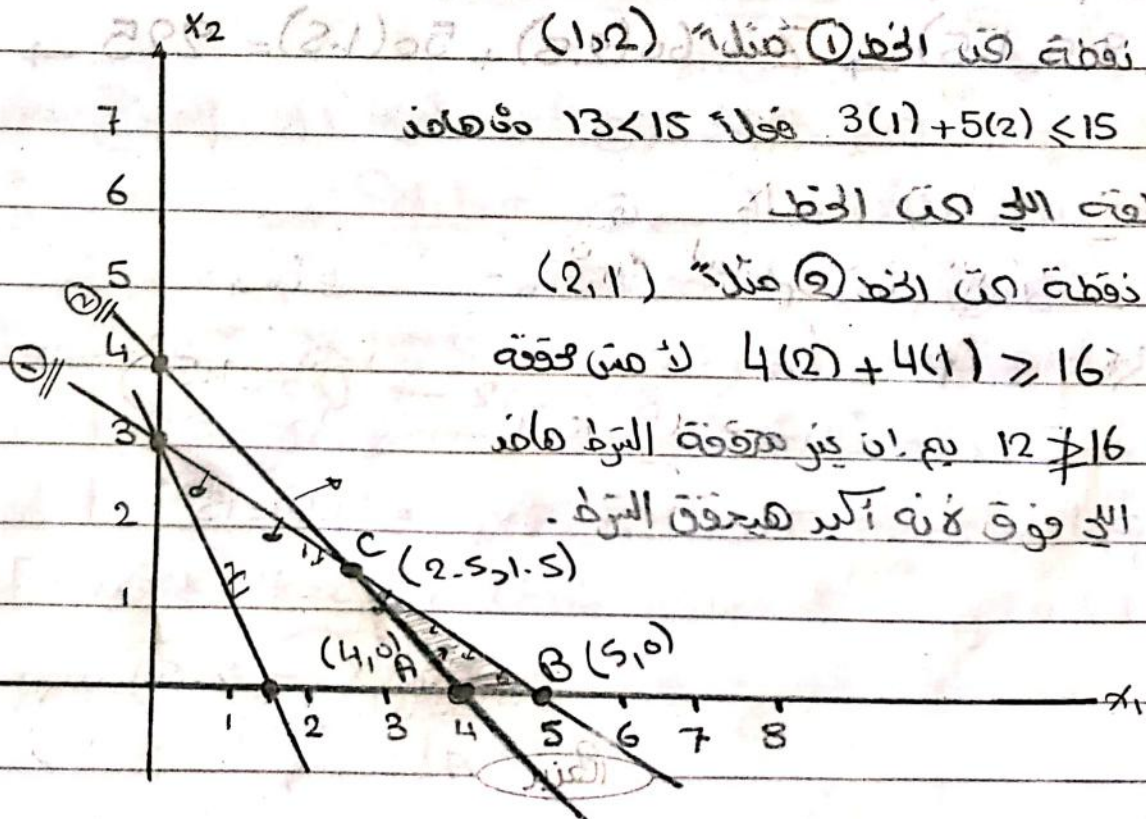 نقطة تحت الخط ① مثلاً (1,2)
3(1)+5(2) ≤ 15 فعلاً 13<15 فهناخد
اللي تحت الخط.
نقطة تحت الخط ② مثلاً (2,1)
4(2)+4(1) ≥ 16 لا مش محققة
12 ≱ 16 الشرط هاخد
اللي فوق لأنه أكيد هيحقق الشرط.
x2
7
6
5
4
3
2
1
C (2.5,1.5)
(4,0) A
B (5,0)
1 2 3 4 5 6 7 8 x1